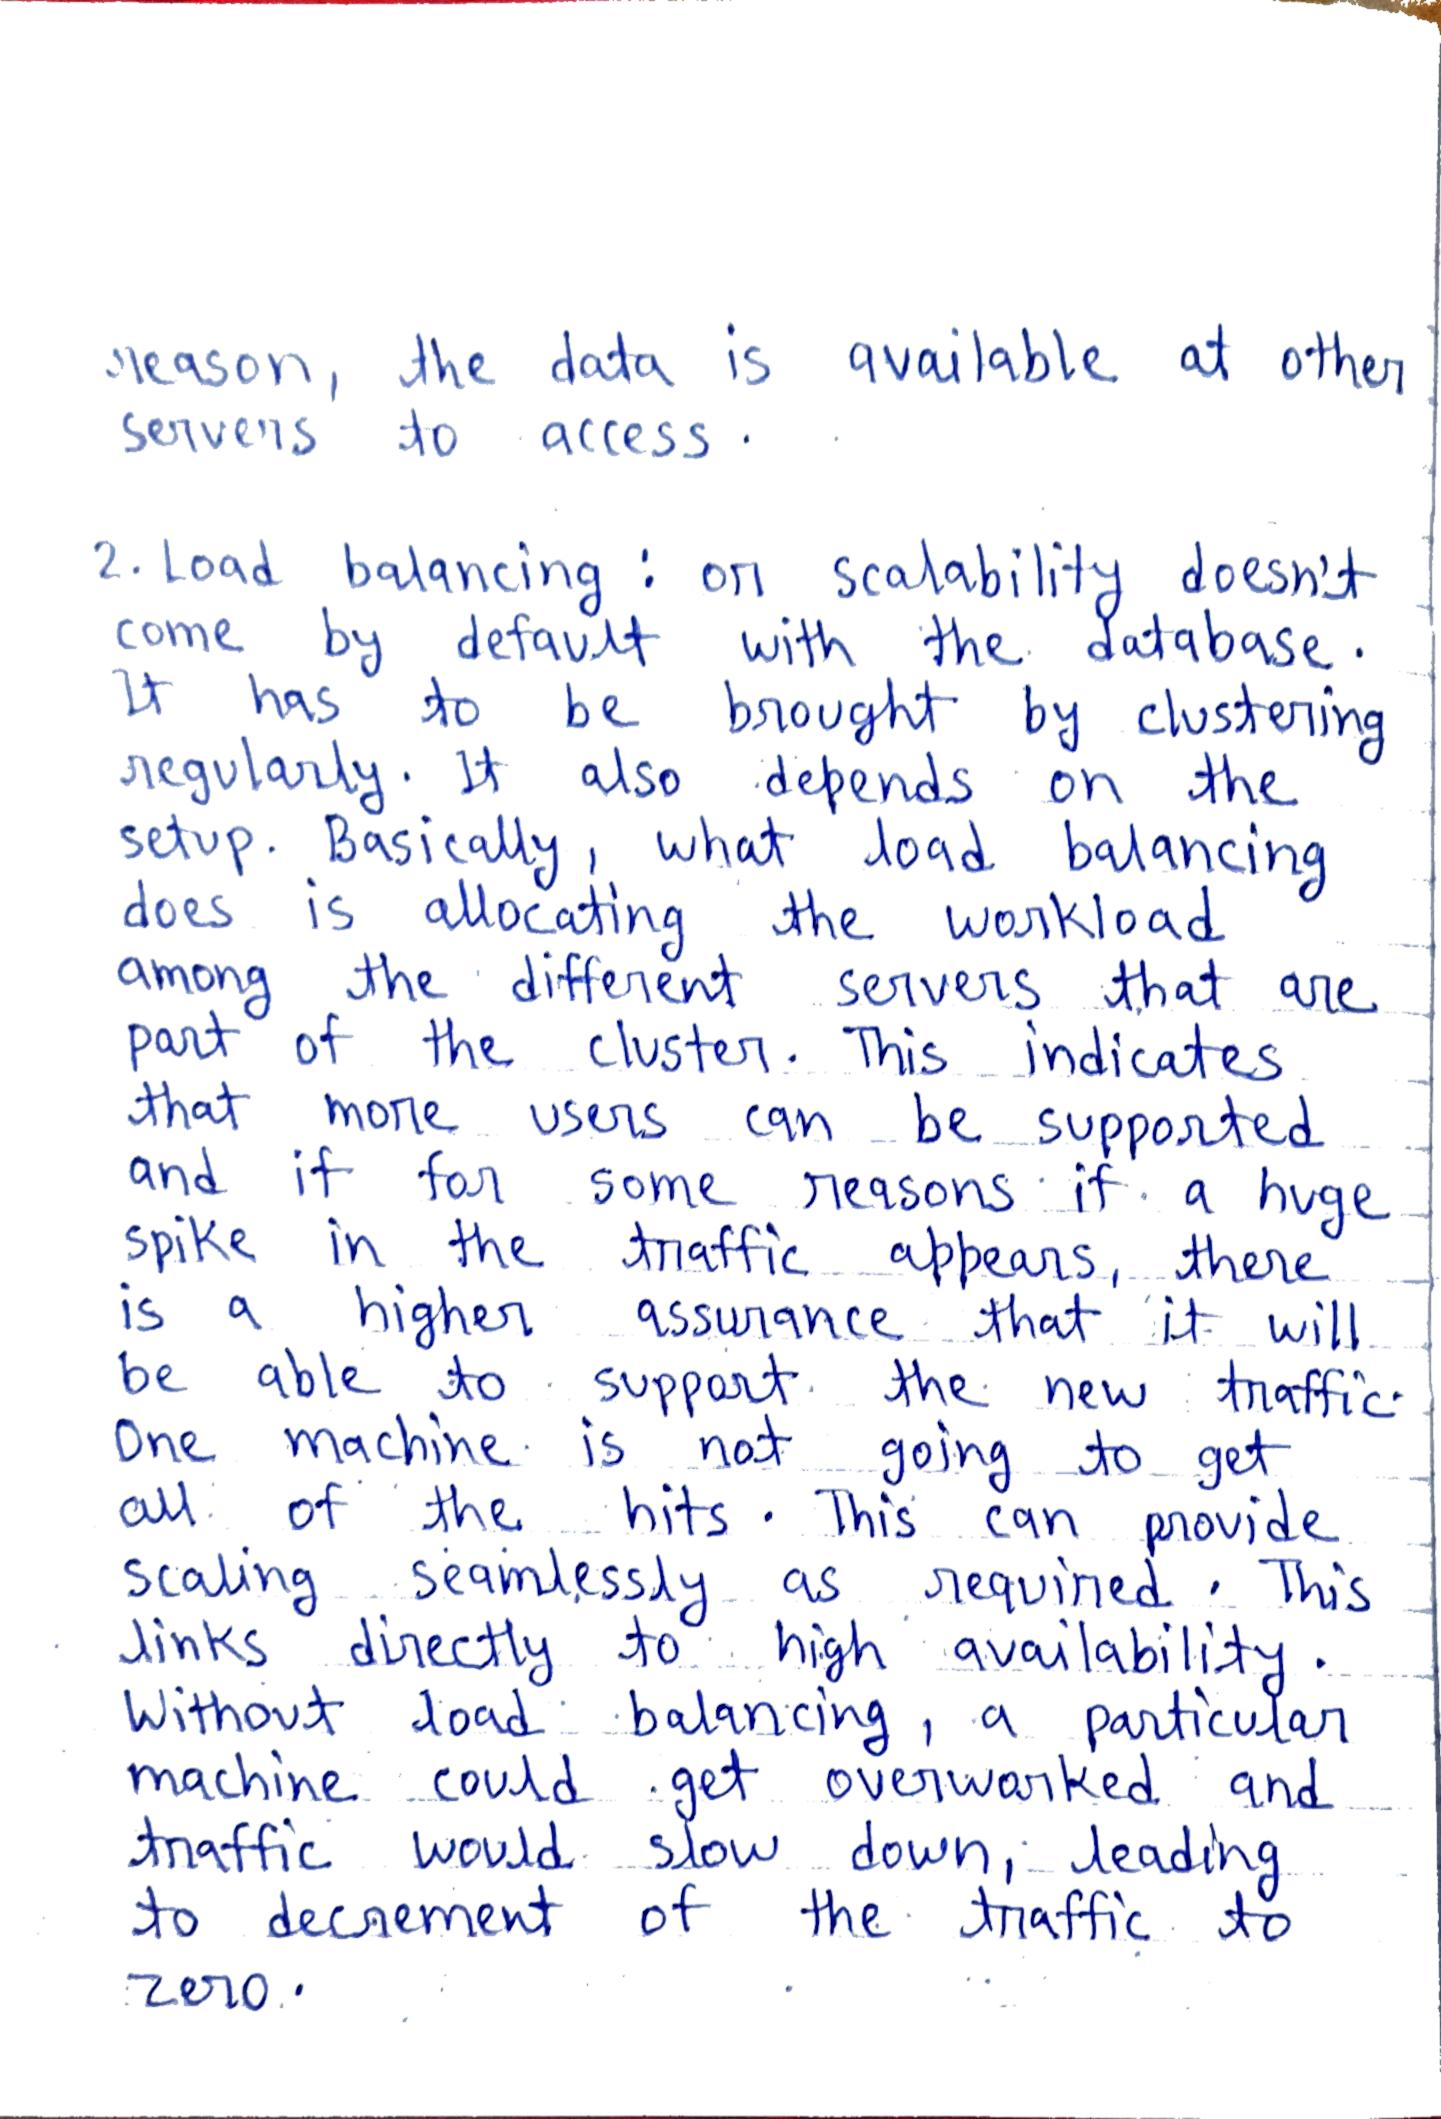 reason, the data is available at other
servers to access.
2. Load balancing : or scalability doesn't
come by default with the database.
It has to be brought by clustering
regularly. It also depends on the
setup. Basically, what load balancing
does is allocating the workload
among the different servers that are
part of the cluster. This indicates
that more users can be supported
and if for some reasons if a huge
spike in the traffic appears, there
is a higher assurance that it will
be able to support the new traffic.
One machine is not going to get
all of the hits. This can provide
scaling seamlessly as required. This
links directly to high availability.
Without load balancing, a particular
machine could get overworked and
traffic would slow down, leading
to decrement of the traffic to
zero.